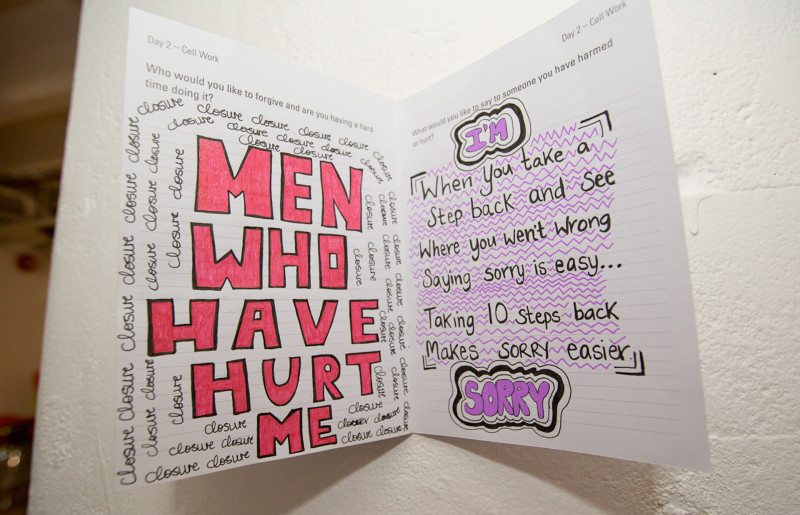 Day 2 – Cell Work
Who would you like to forgive and are you having a hard
time doing it?
closure closure closure closure closure closure
closure closure closure closure
closure closure
closure closure closure closure closure closure
closure closure closure closure closure
closure closure closure
MEN
WHO
HAVE
HURT
ME
closure closure closure closure closure
closure closure closure closure closure
closure closure closure
closure closure closure closure
closure closure closure closure
Day 2 – Cell Work
What would you like to say to someone you have harmed
or hurt?
I'M
When you take a
Step back and see
Where you wen't wrong
Saying sorry is easy...
Taking 10 steps back
Makes SORRY easier.
SORRY